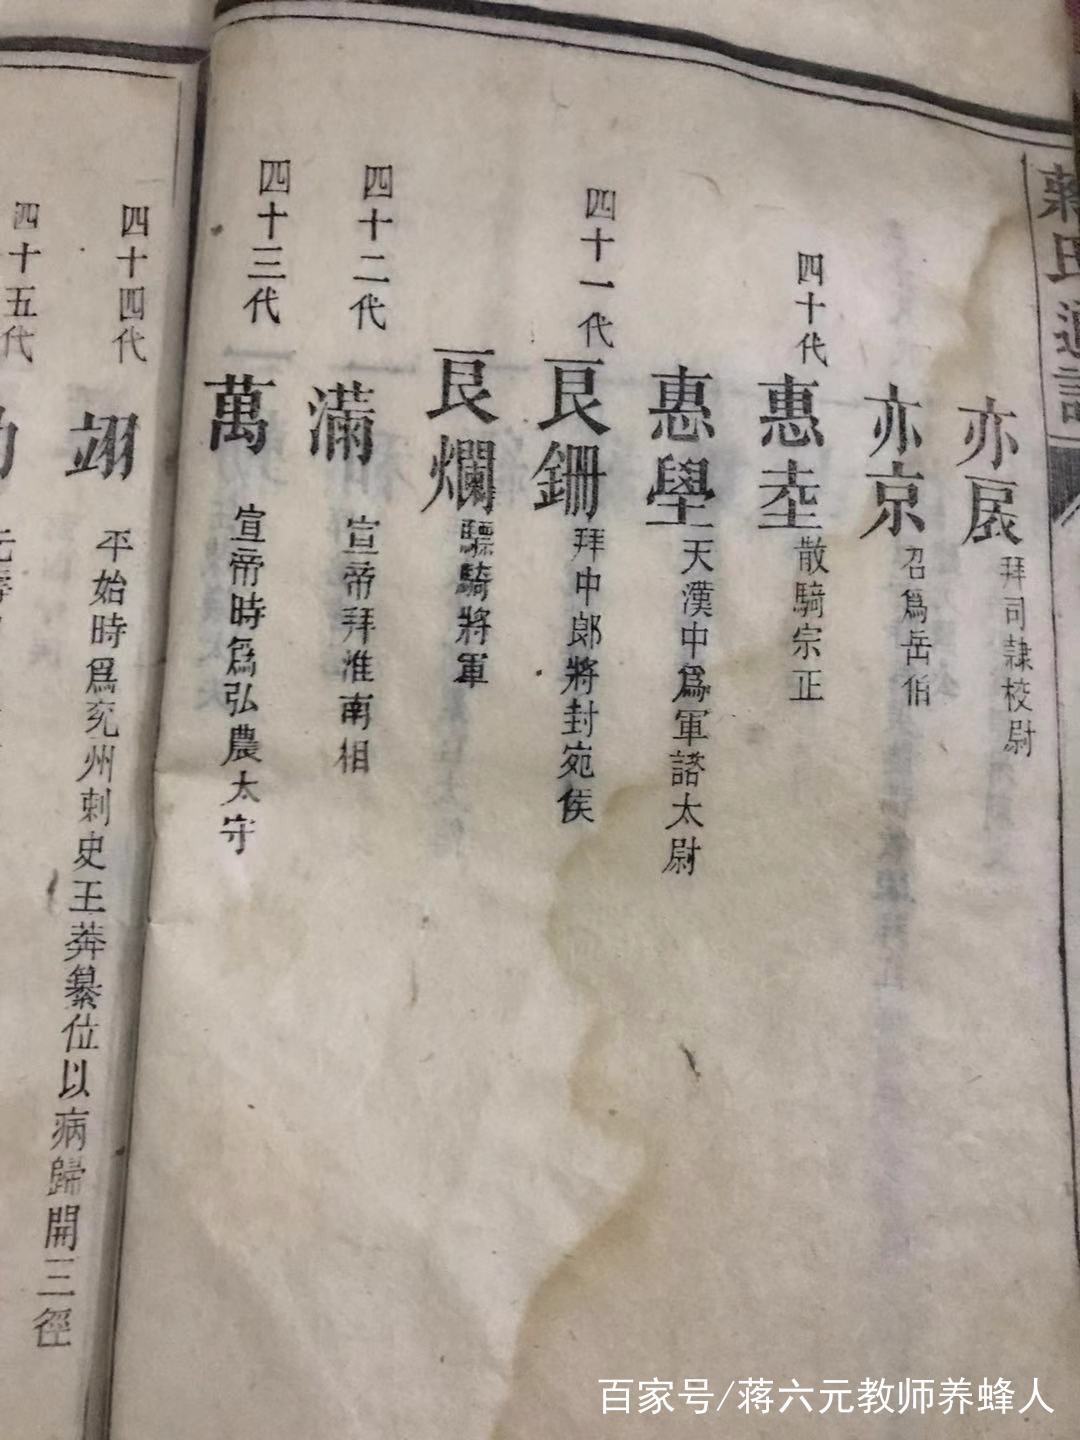 蔣氏通譜
亦展 拜司隷校尉
亦京 召爲岳伯
四十代 惠坴 散騎宗正
惠壆 天漢中爲軍諮太尉
四十一代 艮鉶 拜中郎將封宛侯
艮爛 驃騎將軍
四十二代 滿 宣帝時拜淮南相
四十三代 萬 宣帝時爲弘農太守
四十四代 翊 平始時爲兖州刺史王莽纂位以病歸開三徑
四十五代
百家号/蒋六元教师养蜂人